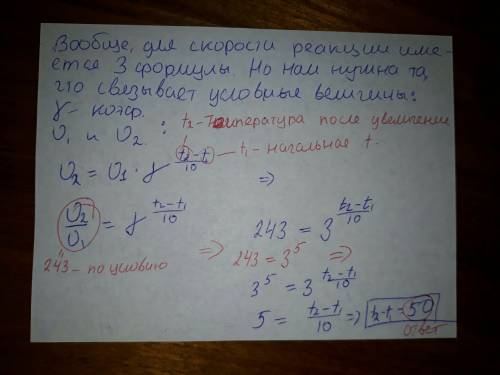 Вообще, для скорости реакции име-
ется 3 формулы. Но нам нужна та,
что связывает условные величины:
γ - коэф.
υ₁ и υ₂ : t₂ - температура после увеличения
υ₂ = υ₁ · γ^((t₂-t₁)/10) — t₁ - начальное t.
⇒
υ₂/υ₁ = γ^((t₂-t₁)/10)
243 - по условию
⇒
243 = 3^((t₂-t₁)/10)
243 = 3⁵ ⇒
3⁵ = 3^((t₂-t₁)/10)
5 = (t₂-t₁)/10 ⇒ t₂-t₁ = 50
ответ